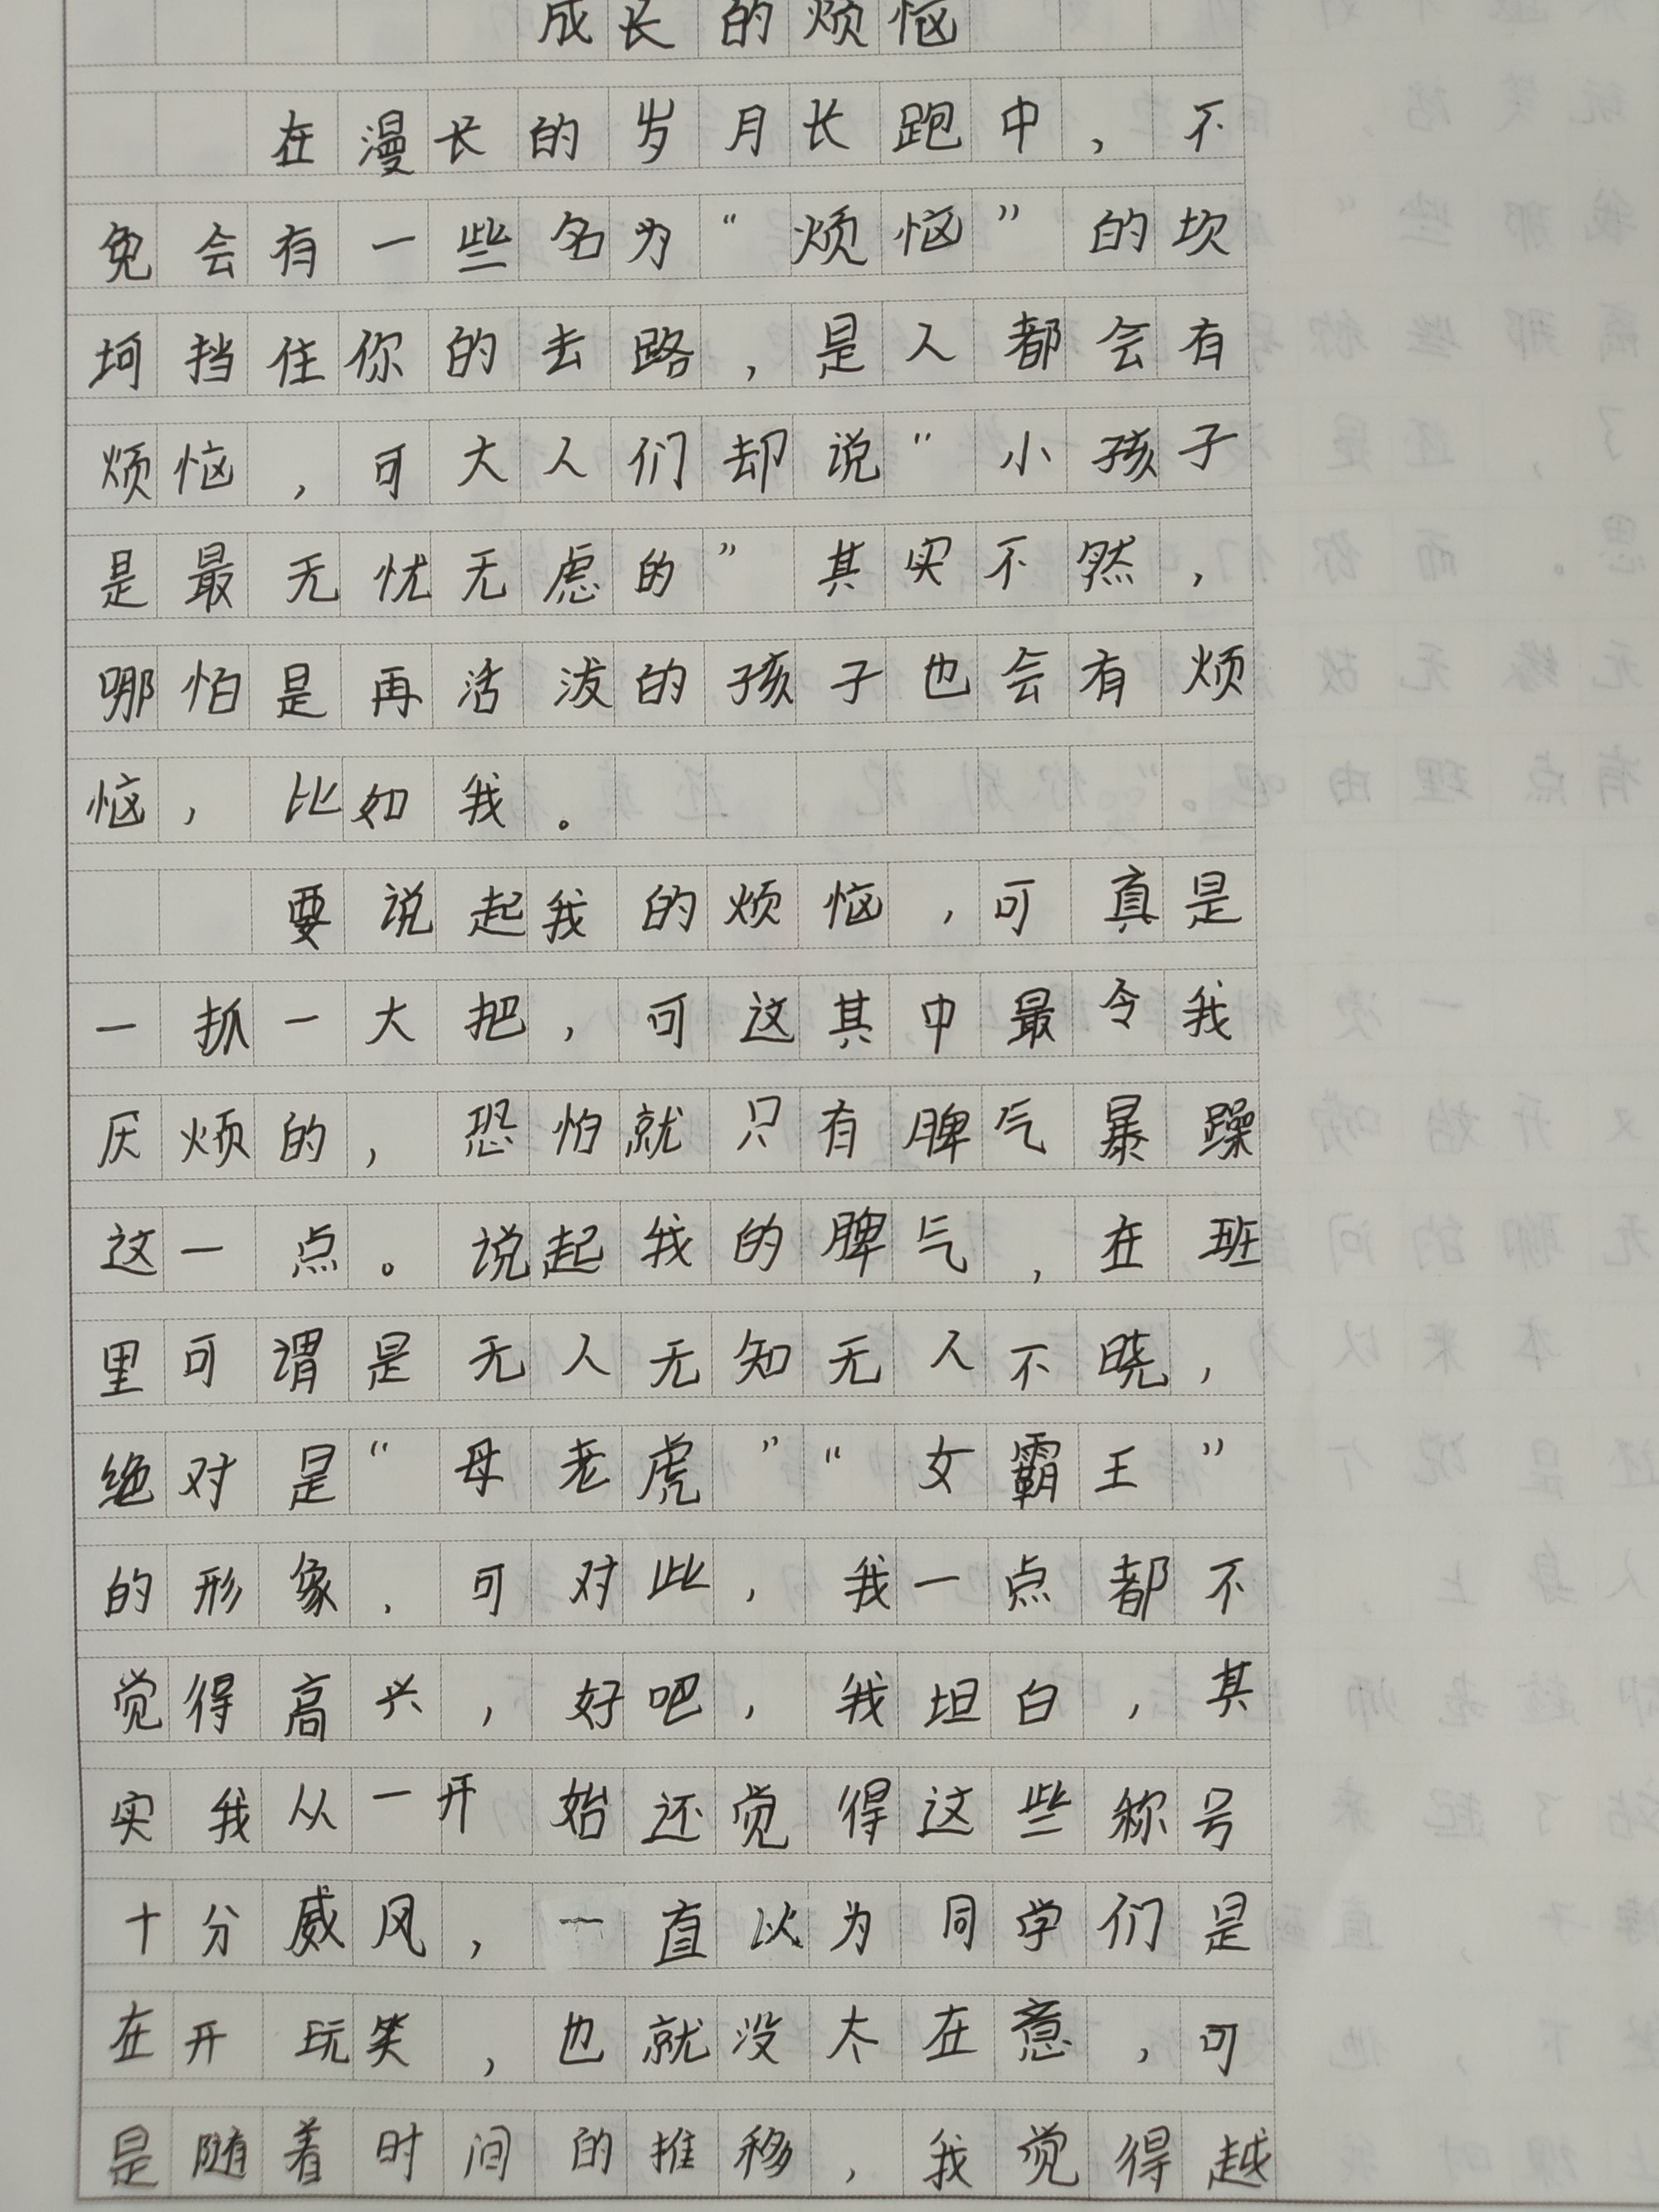 成长的烦恼
在漫长的岁月长跑中，不
免会有一些名为“烦恼”的坎
坷挡住你的去路，是人都会有
烦恼，可大人们却说“小孩子
是最无忧无虑的”其实不然，
哪怕是再活泼的孩子也会有烦
恼，比如我。
要说起我的烦恼，可真是
一抓一大把，可这其中最令我
厌烦的，恐怕就只有脾气暴躁
这一点。说起我的脾气，在班
里可谓是无人无知无人不晓，
绝对是“母老虎”“女霸王”
的形象，可对此，我一点都不
觉得高兴，好吧，我坦白，其
实我从一开始还觉得这些称号
十分威风，一直以为同学们是
在开玩笑，也就没太在意，可
是随着时间的推移，我觉得越